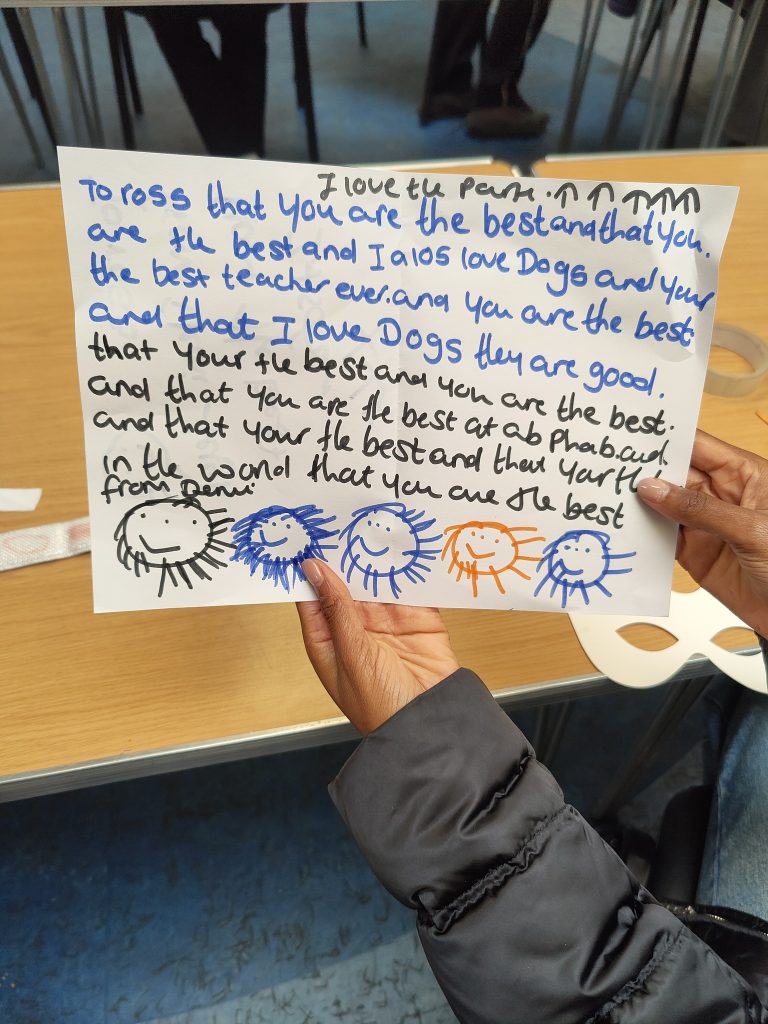 I love the
To ross that you are the best and that you.
are the best and I alos love Dogs and your
the best teacher ever. and you are the best
and that I love Dogs they are good.
that your the best and you are the best.
and that you are the best at ab Phab. and
and that your the best and that your the
in the world that you are the best
from